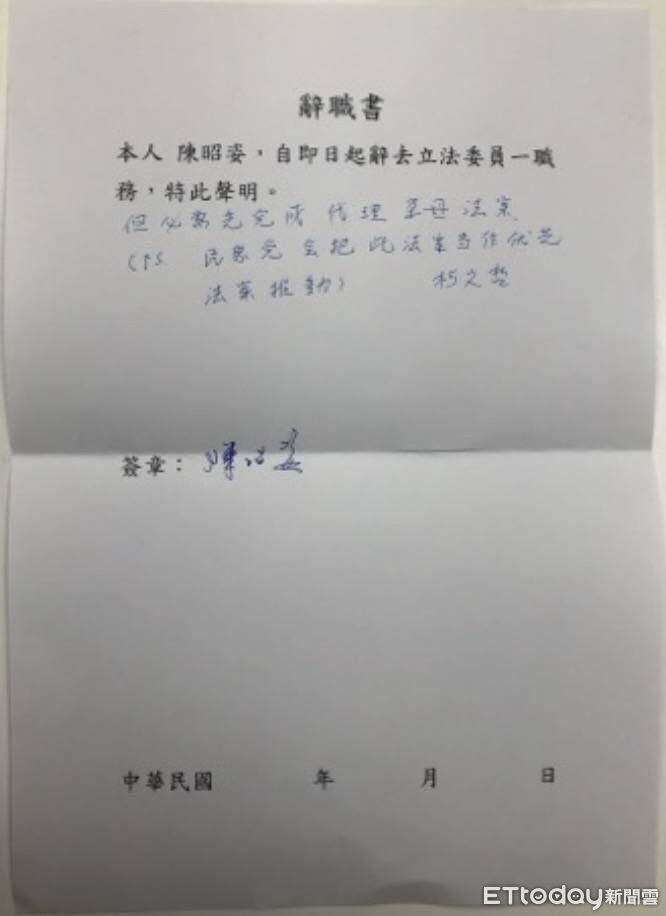 辭職書
本人 陳昭姿，自即日起辭去立法委員一職
務，特此聲明。
但必須先完成 代理孕母 法案
(PS 民眾党 会把 此法案当作优先
法案推動) 柯文哲
簽章： 陳昭姿
中華民國 年 月 日
ETtoday新聞雲